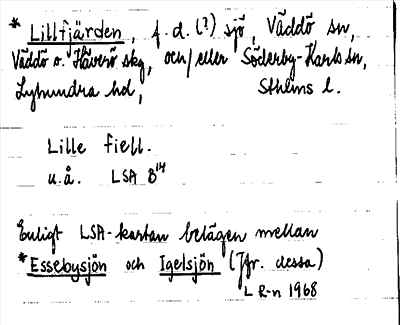 * Lillfjärden, f.d. (?) sjö, Väddö sn,
Väddö o. Häverö skg, och/eller Söderby-Karls sn,
Lyhundra hd, Sthlms l.
Lille fiell.
u.å. LSA 8¹⁴
Enligt LSA-kartan belägen mellan
*Essebysjön och Igelsjön (Jfr. dessa)
L R-n 1968